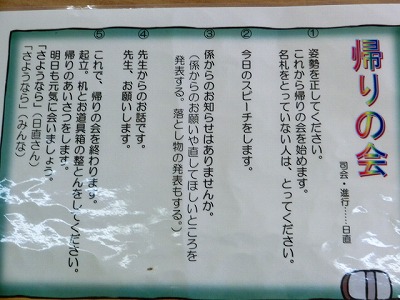 帰りの会
司会・進行……日直
① 姿勢を正してください。
これから帰りの会を始めます。
名札をとっていない人は、とってください。
② 今日のスピーチをします。
③ 係からのお知らせはありませんか。
(係からのお願いや直してほしいところを
発表する。落とし物の発表もする。)
④ 先生からのお話です。
先生、お願いします。
⑤ これで、帰りの会を終わります。
起立。机とお道具箱の整とんをしてください。
帰りのあいさつをします。
明日も元気に会いましょう。
「さようなら」(日直さん)
「さようなら」(みんな)